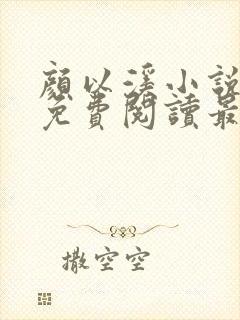 顏以溪小說
免費閱讀最
撒空空